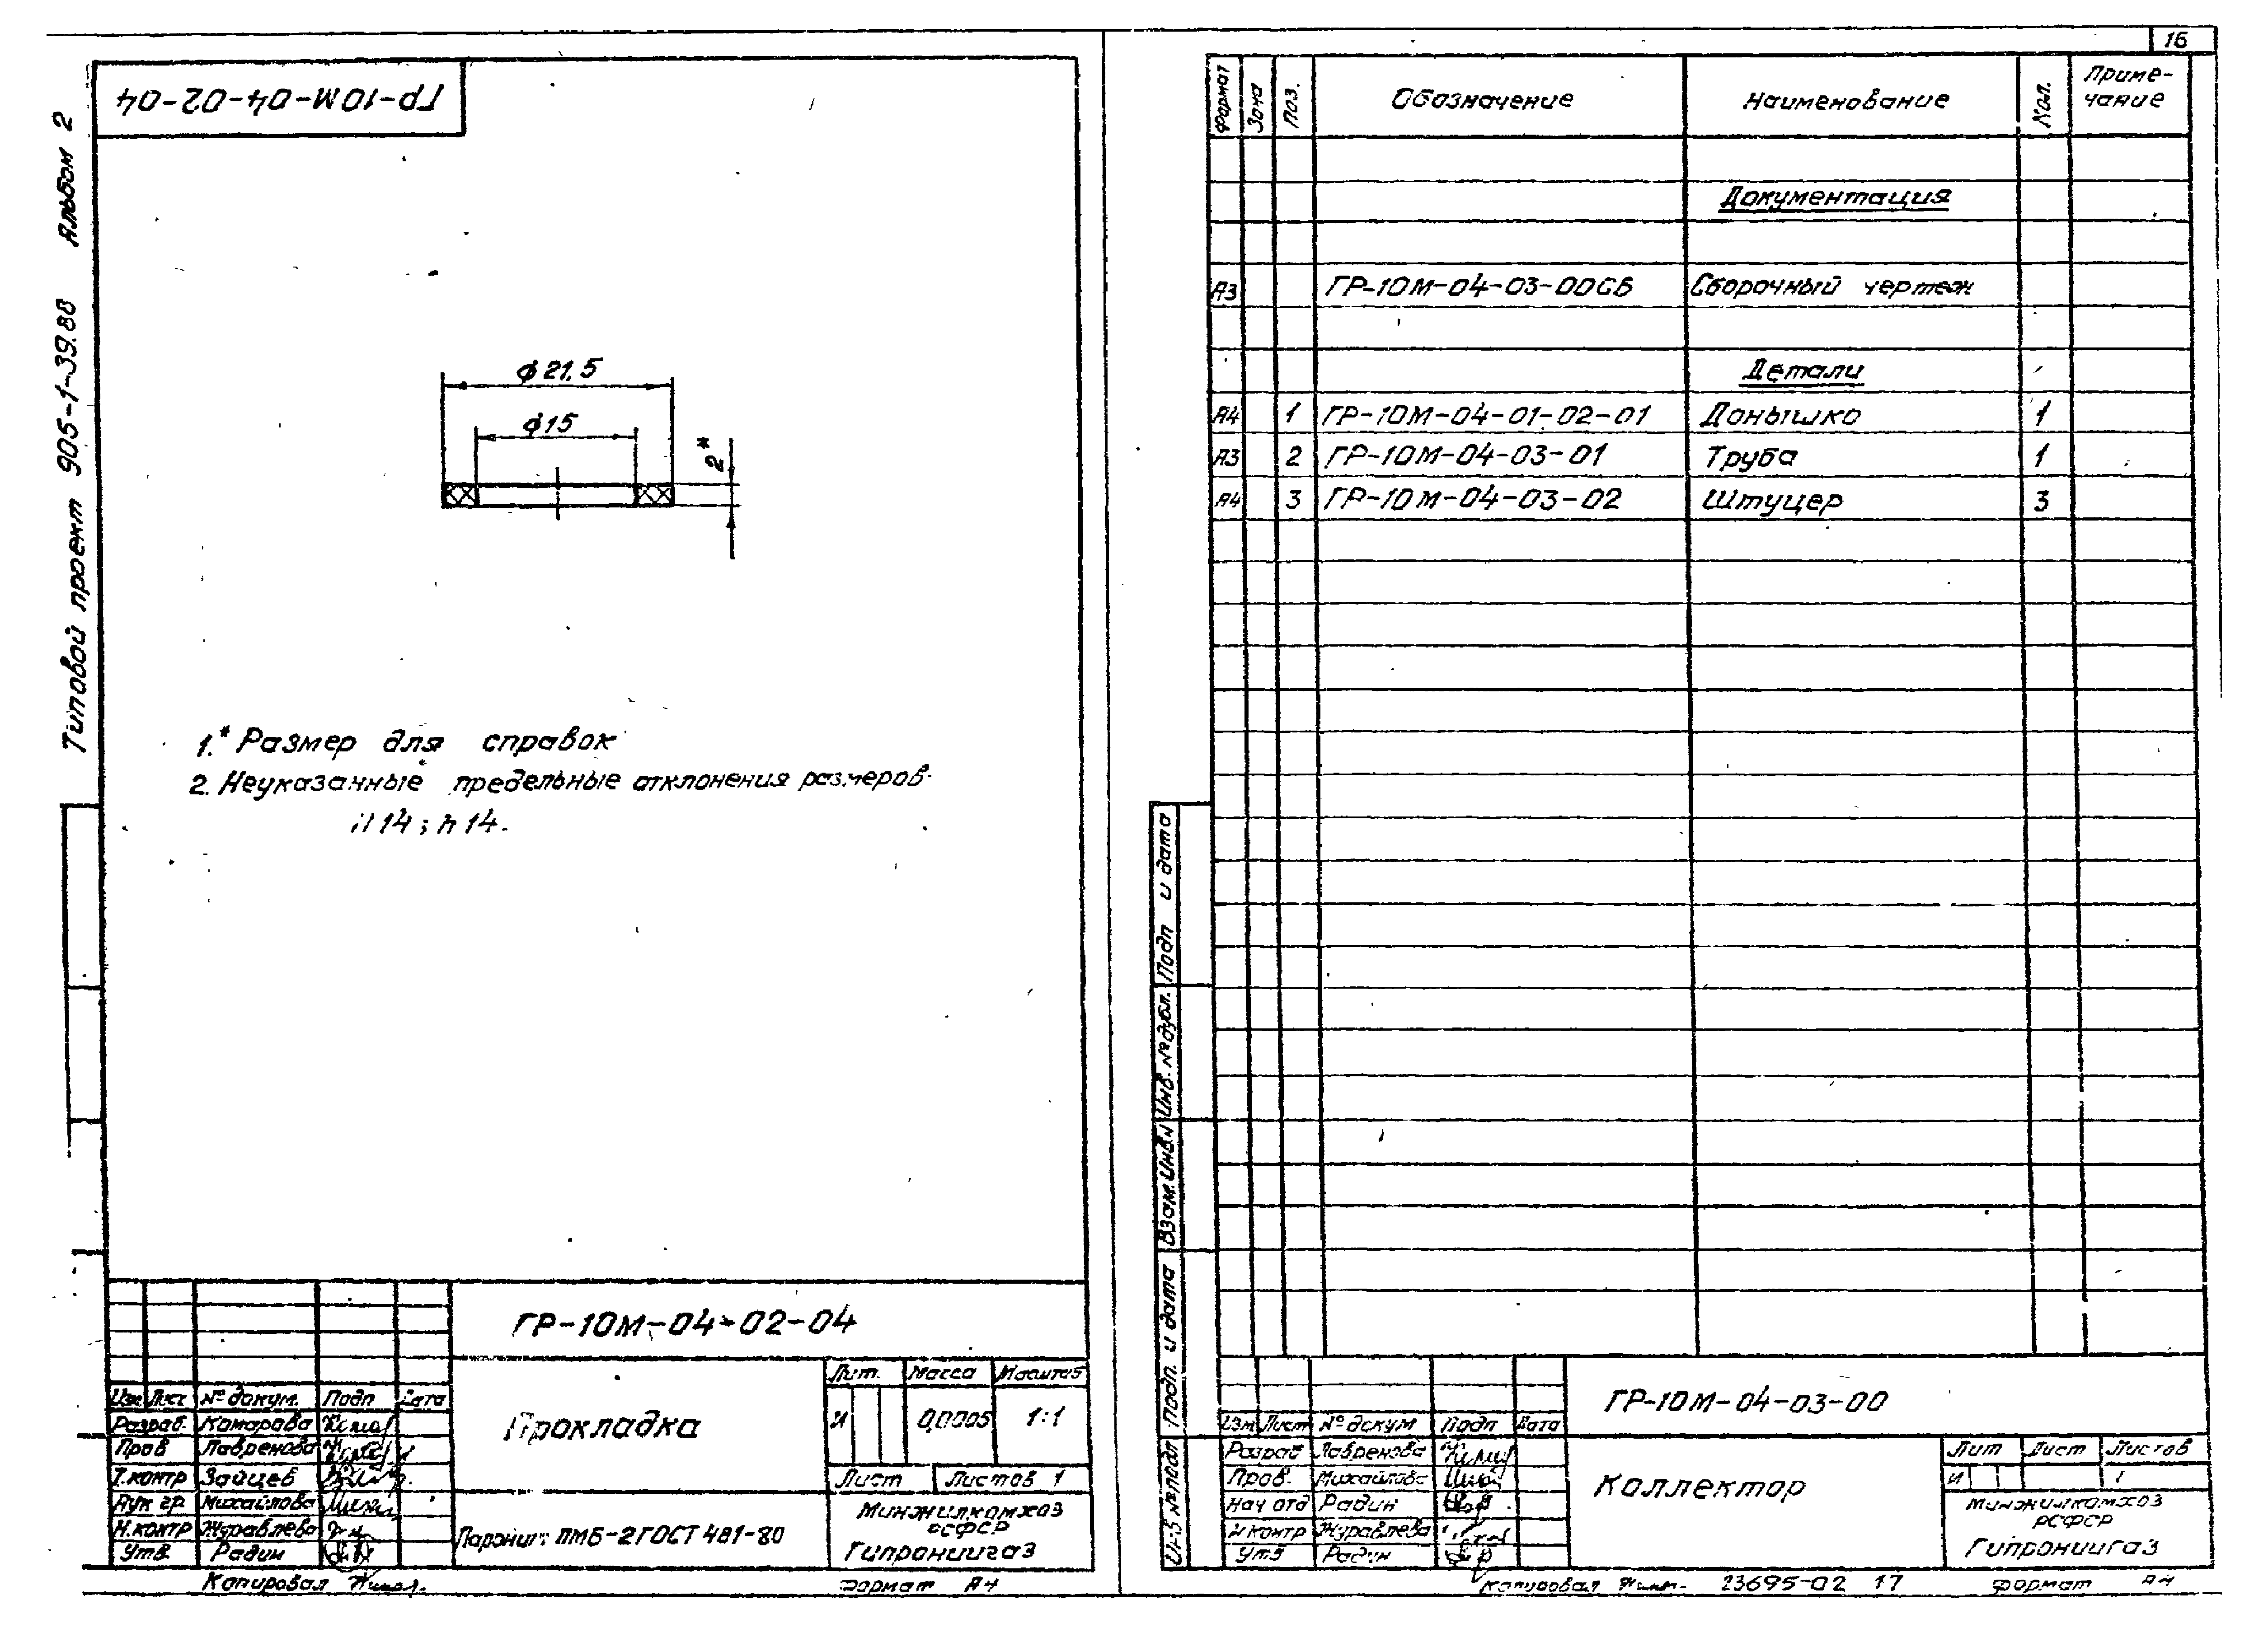 16
ГР-10М-04-02-04
Типовой проект 905-1-39.88 Альбом 2
ϕ21.5
ϕ15
2*
1.* Размер для справок
2. Неуказанные предельные отклонения размеров
H14; h14.
ГР-10М-04-02-04
Изм Лист № докум. Подп Дата
Разраб. Комарова
Пров Лавренова
Т.контр Зайцев
Рук гр. Михайлова
Н.контр Журавлева
Утв. Радин
Прокладка
Лит. Масса Масштаб
И 0,0005 1:1
Лист Листов 1
Паронит ПМБ-2 ГОСТ 481-80
Минжилкомхоз
РСФСР
Гипрониигаз
Копировал
Формат А4
Формат Зона Поз. Обозначение Наименование Кол. Приме-
чание
Документация
А3 ГР-10М-04-03-00СБ Сборочный чертеж
Детали
А4 1 ГР-10М-04-01-02-01 Донышко 1
А3 2 ГР-10М-04-03-01 Труба 1
А4 3 ГР-10М-04-03-02 Штуцер 3
Подп и дата
Инв. № дубл.
Взам. Инв №
Подп. и дата
Инв № подл
ГР-10М-04-03-00
Изм Лист № докум Подп Дата
Разраб Лавренова
Пров. Михайлова
Нач отд Радин
Н контр Журавлева
Утв Радин
Коллектор
Лит Лист Листов
И 1
Минжилкомхоз
РСФСР
Гипрониигаз
Копировал 23695-02 17 Формат А4